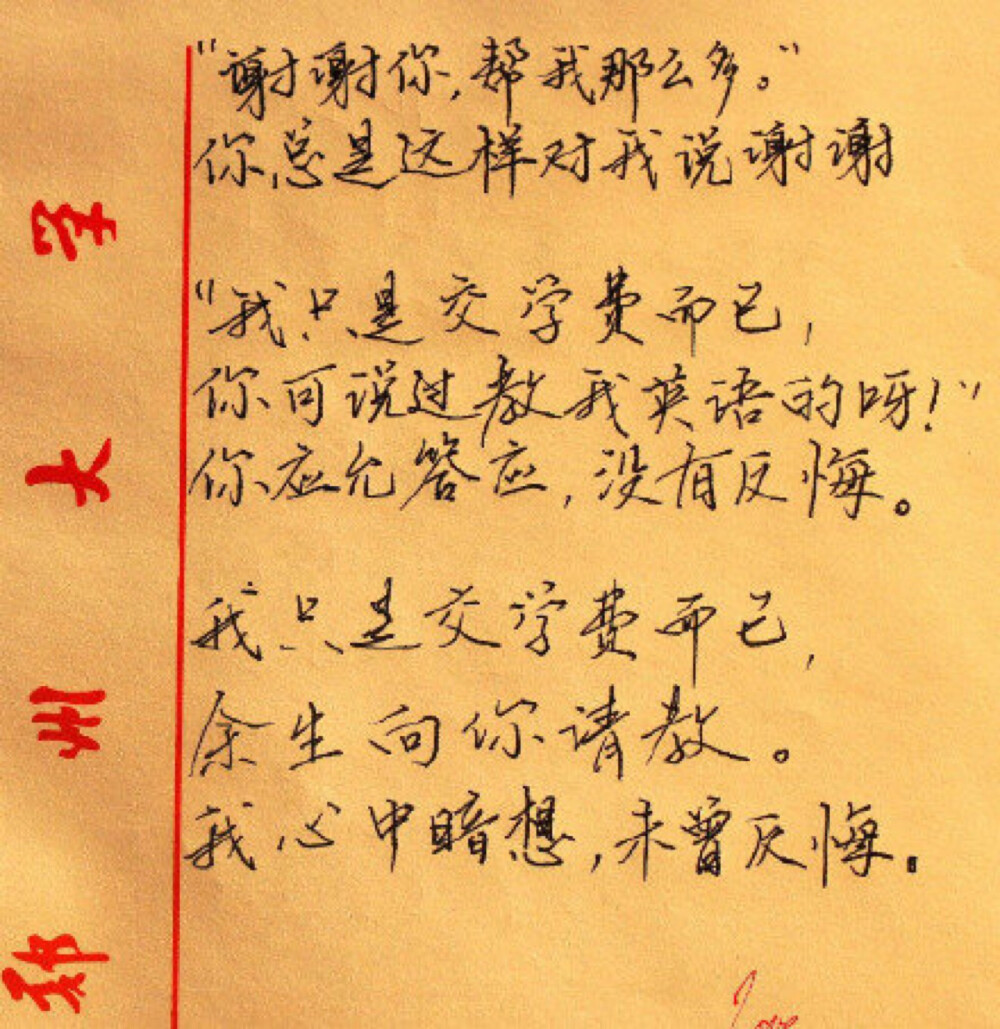 “谢谢你,帮我那么多。”
你总是这样对我说谢谢
“我只是交学费而已,
你可说过教我英语的呀!”
你应允答应,没有反悔。
我只是交学费而已,
余生向你请教。
我心中暗想,未曾反悔。
郑州大学
Love